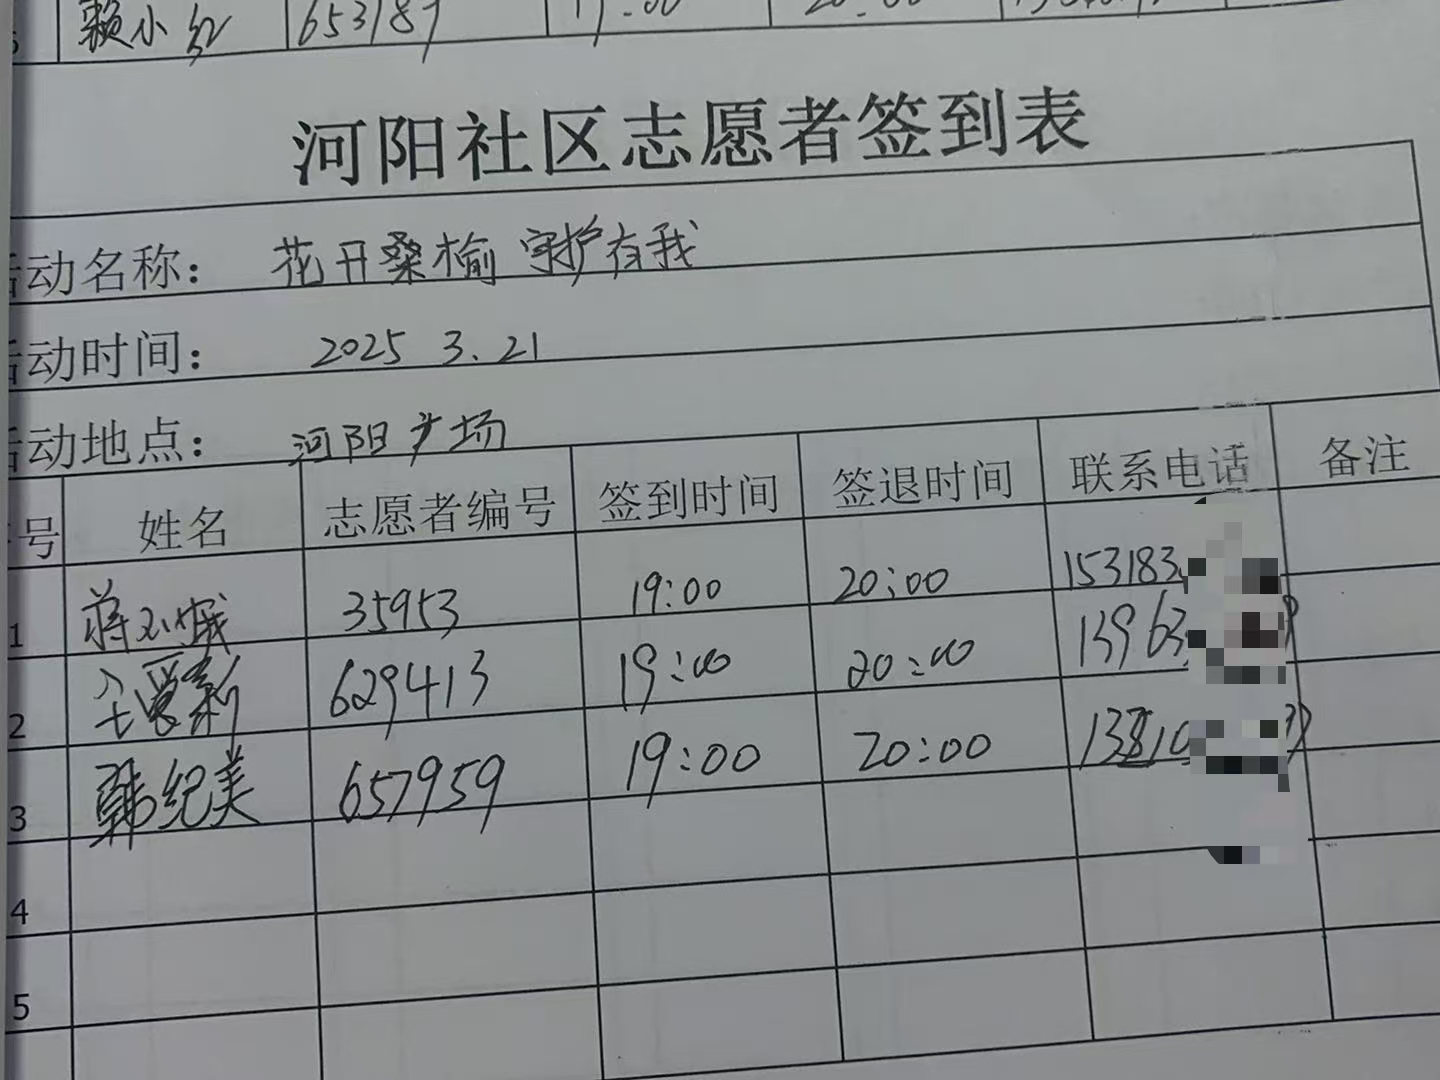 赖小红 653189 19:00 20:00
河阳社区志愿者签到表
活动名称: 花开桑榆 守护有我
活动时间: 2025 3.21
活动地点: 河阳广场
序号 姓名 志愿者编号 签到时间 签退时间 联系电话 备注
1 蒋 35953 19:00 20:00 153183
2 629413 19:00 20:00 13963
3 韩纪美 657959 19:00 20:00 13810
4
5